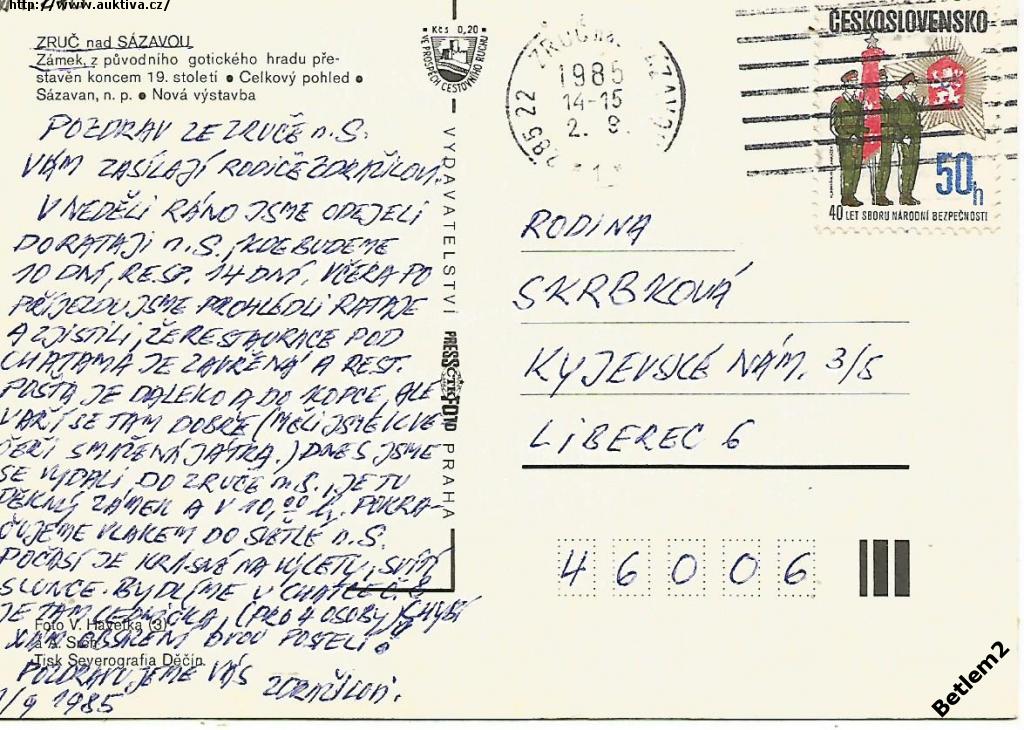 http://www.auktiva.cz/
ZRUČ nad SÁZAVOU
Zámek, z původního gotického hradu pře-
stavěn koncem 19. století • Celkový pohled •
Sázavan, n. p. • Nová výstavba
Kčs 0,20
VE PROSPĚCH CESTOVNÍHO RUCHU
POZDRAV ZE ZRUČE n.S.
VÁM ZASÍLAJÍ RODIČE ZDRAŽILOVI.
V NEDĚLI RÁNO JSME ODEJELI
DO RATAJÍ n.S., KDE BUDEME
10 DNÍ, RESP. 14 DNÍ. VČERA PO
PŘÍJEZDU JSME PROHLÉDLI RATAJE
A ZJISTILI, ŽE RESTAURACE POD
CHATAMA JE ZAVŘENÁ A REST.
POŠTA JE DALEKO A DO KOPCE, ALE
VAŘÍ SE TAM DOBŘE (MĚLI JSME K VE
ČEŘI SMAŽENÁ JÁTRA.) DNES JSME
SE VYDALI DO ZRUČE n.S., JE TU
PĚKNÝ ZÁMEK A V 10,00 h. POKRA-
ČUJEME VLAKEM DO SVĚTLÉ n.S.
POČASÍ JE KRÁSNÉ NA VÝLETY, SVÍTÍ
SLUNCE. BYDLÍME V CHATCE Č. 2
JE TAM LEDNIČKA, (PRO 4 OSOBY) CHYBÍ
OBSAZENÍ DVOU POSTELÍ.
Foto V. Havelka (3)
a A. Srch
Tisk Severografia Děčín
POZDRAVUJEME VÁS ZDRAŽILOVI.
1/9 1985
VYDAVATELSTVÍ PRESSFOTO PRAHA
ČTK
1985
14-15
2. 9.
285 22
1
ČESKOSLOVENSKO
50h
40 LET SBORU NÁRODNÍ BEZPEČNOSTI
RODINA
SKRBKOVÁ
KYJEVSKÉ NÁM. 3/5
LIBEREC 6
46006
Betlem2